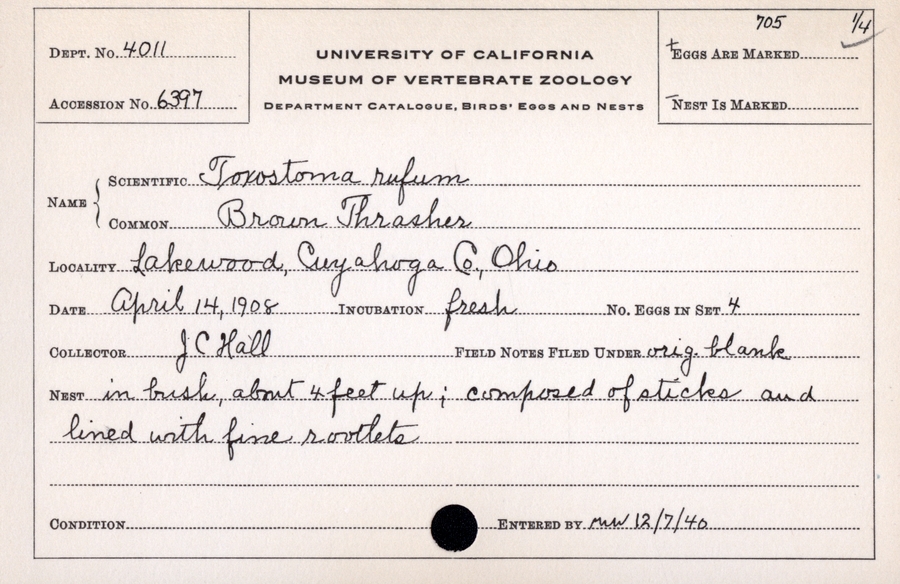 705 1/4
DEPT. No. 4011
UNIVERSITY OF CALIFORNIA
MUSEUM OF VERTEBRATE ZOOLOGY
DEPARTMENT CATALOGUE, BIRDS' EGGS AND NESTS
+EGGS ARE MARKED
ACCESSION No. 6397
NEST IS MARKED
NAME
SCIENTIFIC Toxostoma rufum
COMMON Brown Thrasher
LOCALITY Lakewood, Cuyahoga Co., Ohio
DATE April 14, 1908 INCUBATION fresh No. EGGS IN SET 4
COLLECTOR J C Hall FIELD NOTES FILED UNDER orig. blank
NEST in bush, about 4 feet up; composed of sticks and
lined with fine rootlets
CONDITION ENTERED BY mw 12/7/40